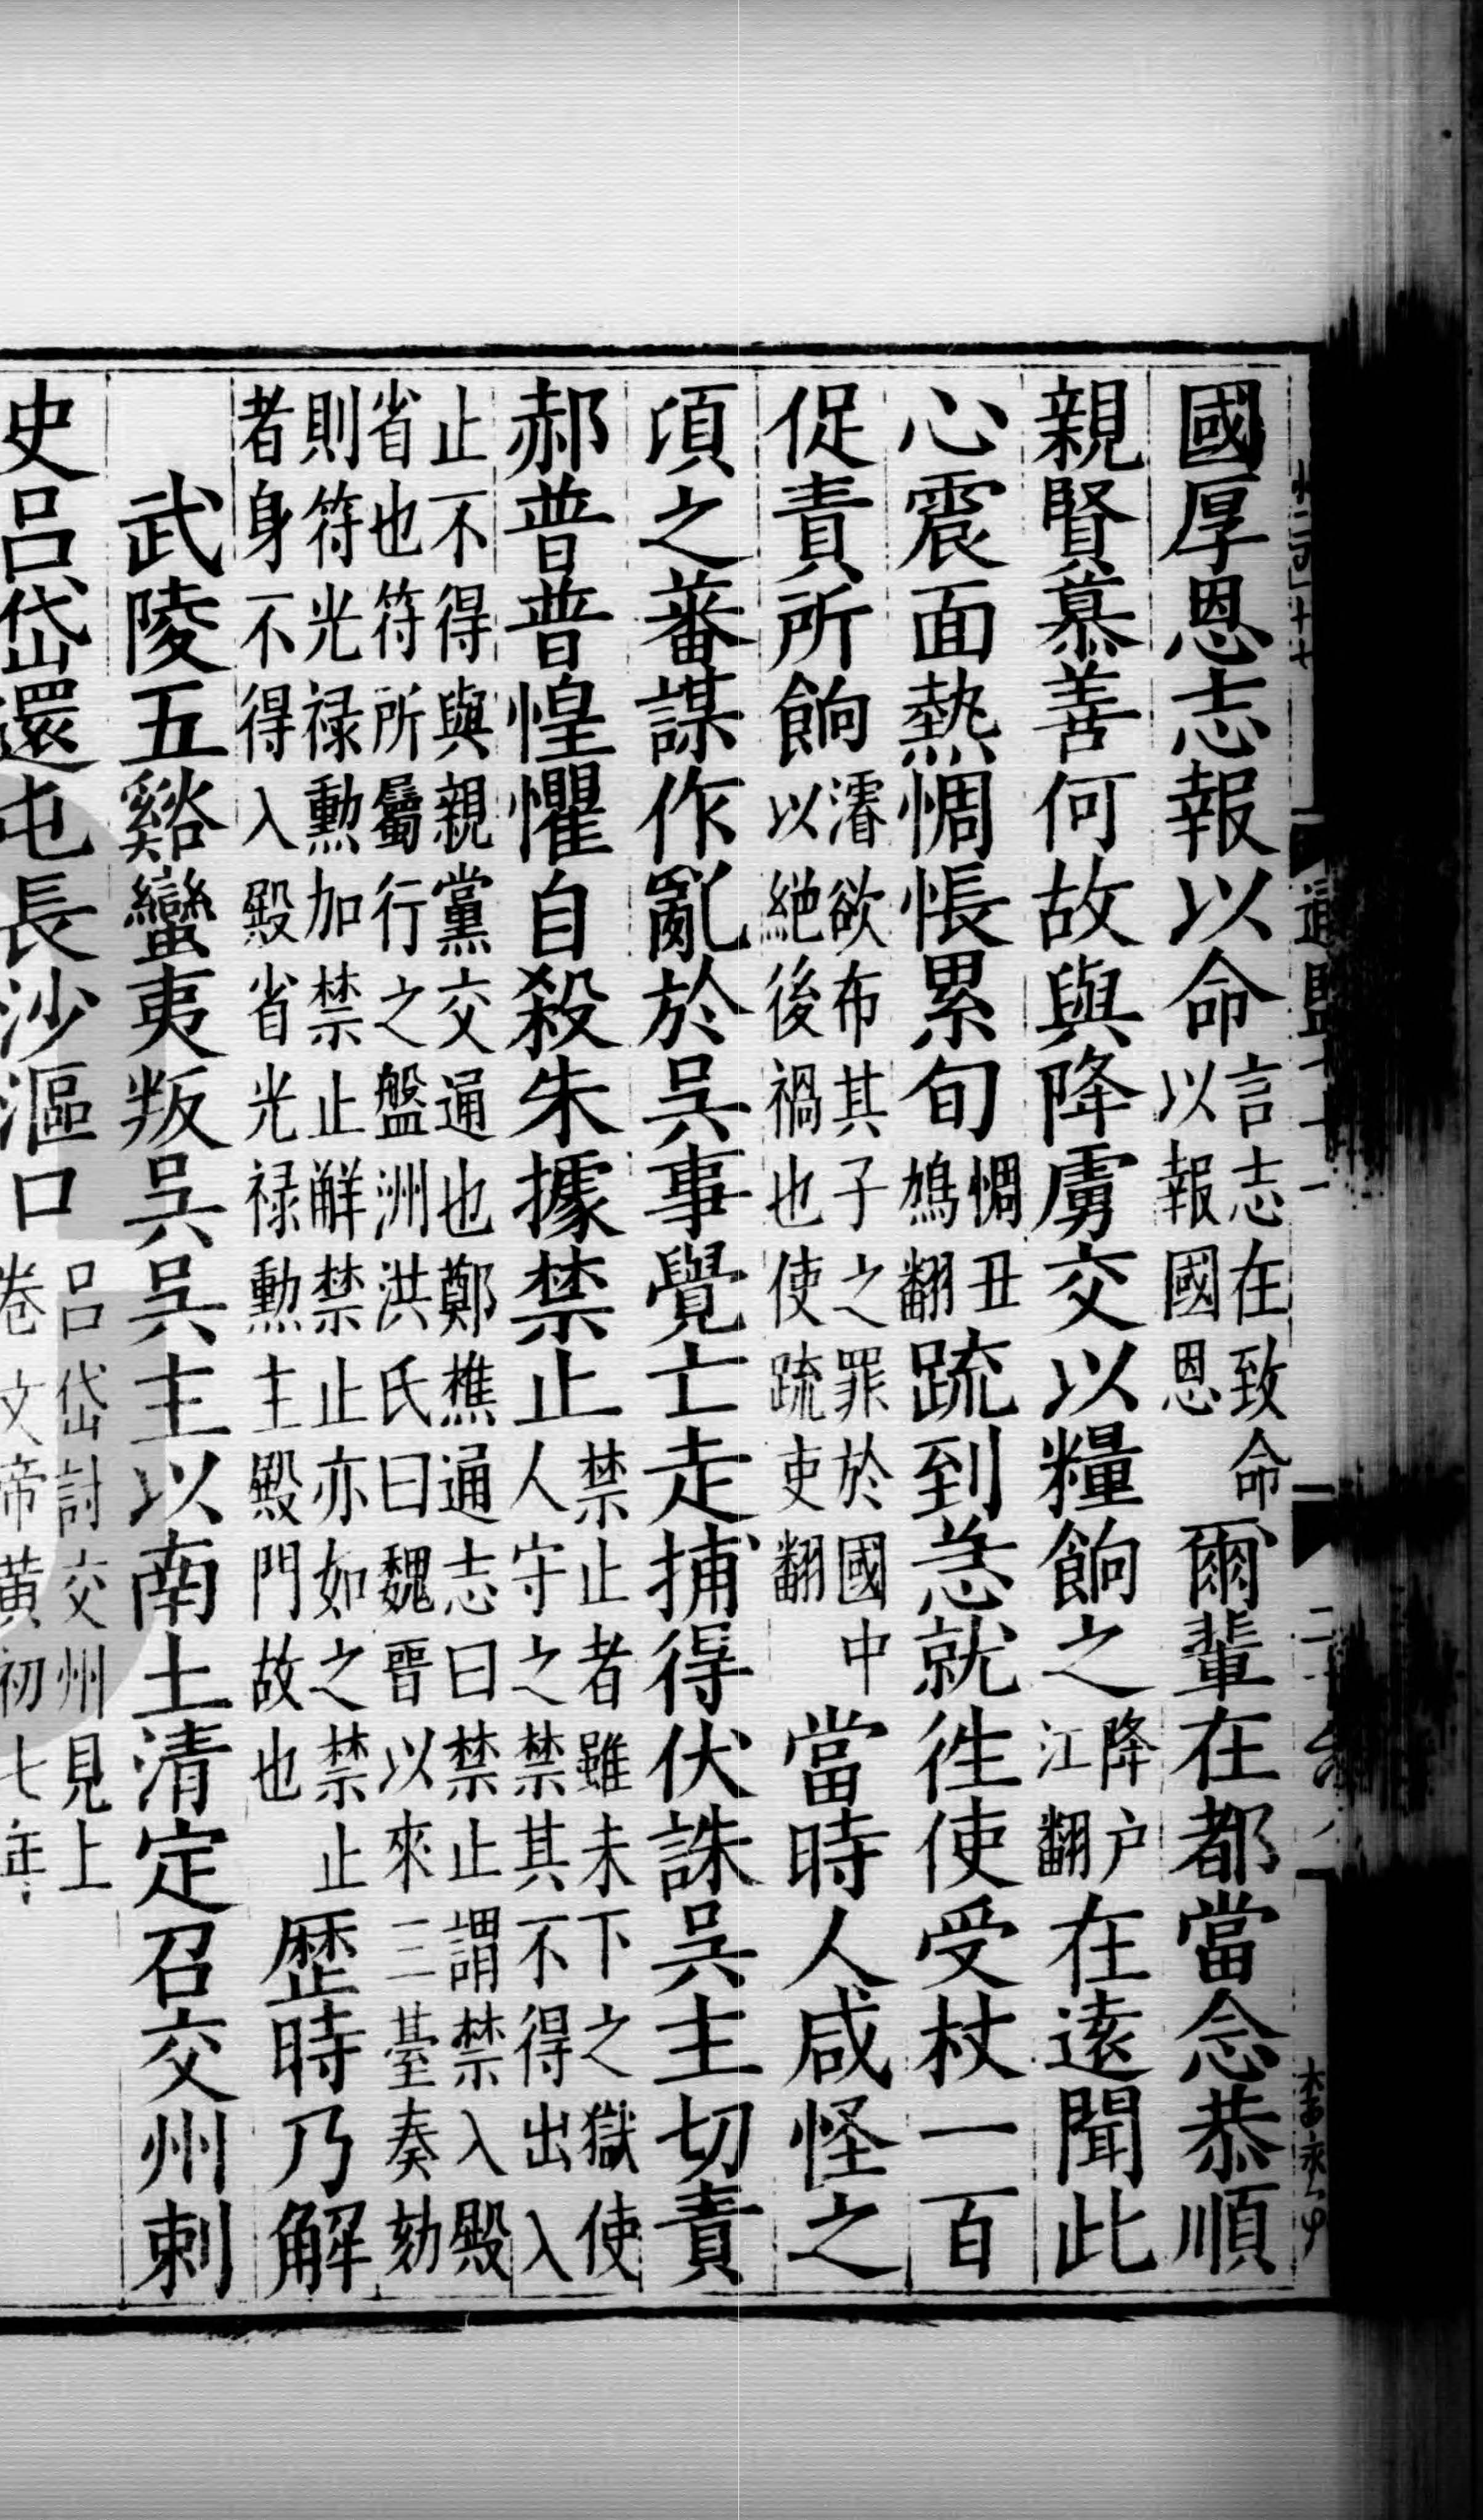 國厚恩志報以命言志在致命以報國恩爾輩在都當念恭順
親賢慕善何故與降虜交以糧餉之降户江翻在逺聞此
心震面熱惆悵累旬惆丑鳩翻疏到急就往使受杖一百
促責所餉濬欲布其子之罪於國中以絶後禍也使疏吏翻當時人咸怪之
頃之蕃謀作亂於吳事覺亡走捕得伏誅吳主切責
郝普普惶懼自殺朱據禁止禁止者雖未下之獄使人守之禁其不得出入
止不得與親黨交通也鄭樵通志曰禁止謂禁入殿
省也符所屬行之盤洲洪氏曰魏晉以來三臺奏劾
則符光禄勳加禁止解禁止亦如之禁止
者身不得入殿省光禄勳主殿門故也歴時乃解
武陵五谿蠻夷叛吳吳主以南土清定召交州刺
史吕岱還屯長沙漚口吕岱討交州見上卷文帝黄初七年